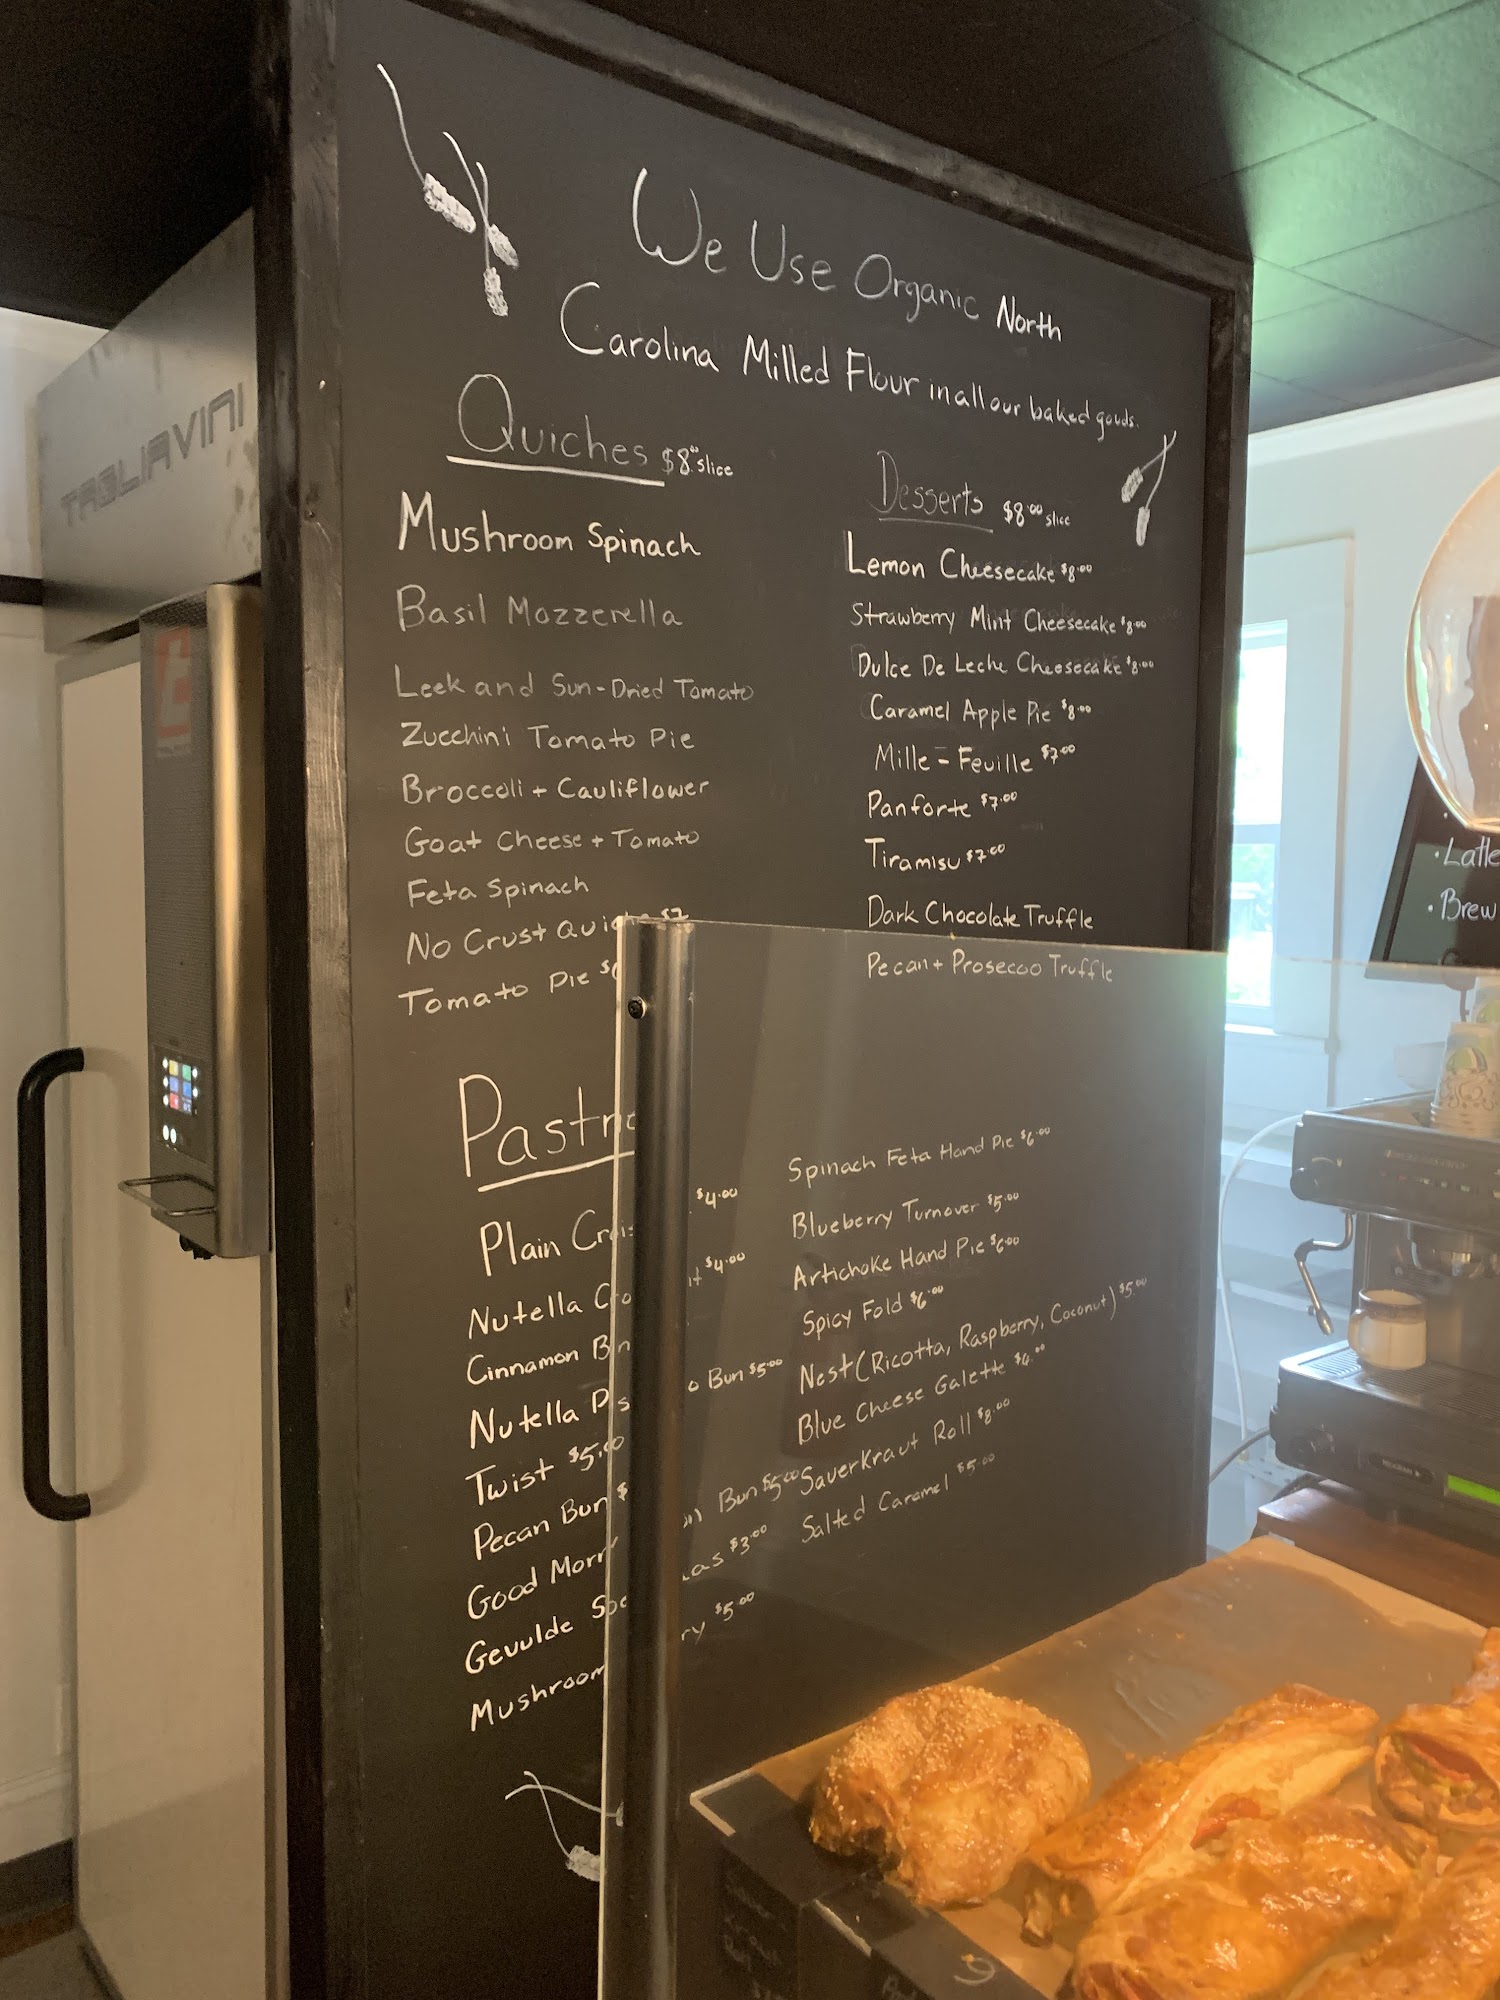 We Use Organic North
Carolina Milled Flour in all our baked goods.
TAGLIAVINI
Quiches $8.00 slice
Mushroom Spinach
Basil Mozzerella
Leek and Sun-Dried Tomato
Zucchini Tomato Pie
Broccoli + Cauliflower
Goat Cheese + Tomato
Feta Spinach
No Crust $7
Tomato Pie
Desserts $8.00 slice
Lemon Cheesecake $8.00
Strawberry Mint Cheesecake $8.00
Dulce De Leche Cheesecake $8.00
Caramel Apple Pie $8.00
Mille-Feuille $7.00
Panforte $7.00
Tiramisu $7.00
Dark Chocolate Truffle
Pecan + Prosecco Truffle
Plain $4.00
Nutella $4.00
Cinnamon
Nutella Bun $5.00
Twist $5.00
Pecan Bun
Good Bun $5.00
Gevulde $3.00
Mushroom $5.00
Spinach Feta Hand Pie $6.00
Blueberry Turnover $5.00
Artichoke Hand Pie $6.00
Spicy Fold $6.00
Nest (Ricotta, Raspberry, Coconut) $5.00
Blue Cheese Galette
SauerKraut Roll $8.00
Salted Caramel $5.00
· Latte
· Brew